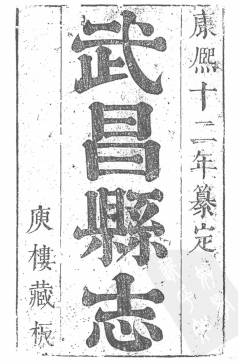 康熙十二年纂定
武昌縣志
庾樓藏板